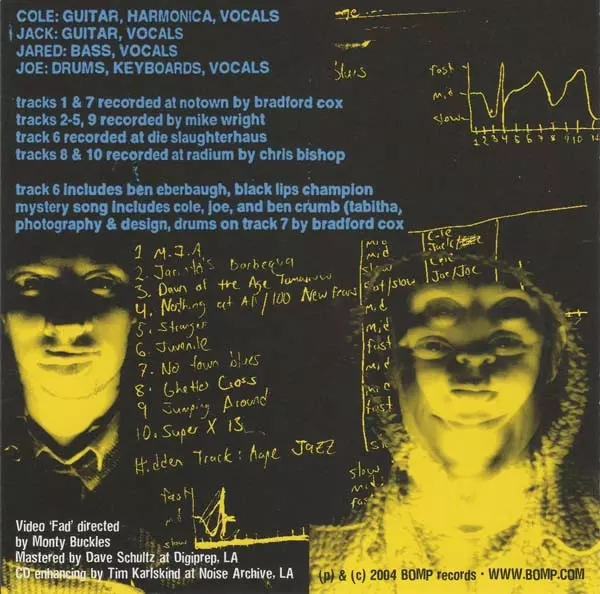 COLE: GUITAR, HARMONICA, VOCALS
JACK: GUITAR, VOCALS
JARED: BASS, VOCALS
JOE: DRUMS, KEYBOARDS, VOCALS
tracks 1 & 7 recorded at notown by bradford cox
tracks 2-5, 9 recorded by mike wright
track 6 recorded at die slaughterhaus
tracks 8 & 10 recorded at radium by chris bishop
track 6 includes ben eberbaugh, black lips champion
mystery song includes cole, joe, and ben crumb (tabitha,
photography & design, drums on track 7 by bradford cox
blues
fast
mid
slow
1 2 3 4 5 6 7 8 9 10
1 M.I.A
2. Barbequa
3. Dawn of the Age Tomorrow
4. Nothing at All / 100 New Fears
5. Stranger
6. Juvenile
7. No town blues
8. Ghetto Cross
9 Jumping Around
10. Super X 13
Hidden Track: Aape JAZZ
mid
mid
slow
fast/slow
mid
mid
fast
mid
mid
fast
Cole
Jack
Cole
Joe/Joe
slow
mid
fast
fast
mid
slow
Video 'Fad' directed
by Monty Buckles
Mastered by Dave Schultz at Digiprep, LA
CD enhancing by Tim Karlskind at Noise Archive, LA
(p) & (c) 2004 BOMP records · WWW.BOMP.COM